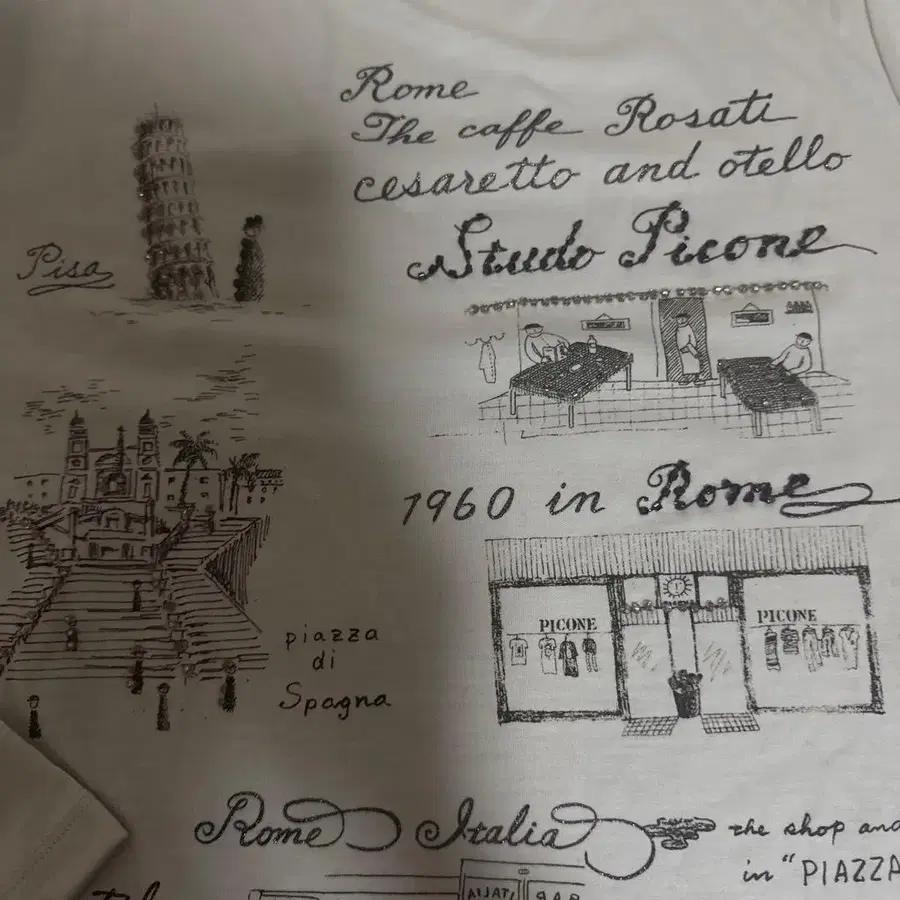 Rome
The caffe Rosati
cesaretto and otello
Studo Picone
Pisa
1960 in Rome
PICONE
PICONE
piazza
di
Spagna
Rome Italia
the shop and
in "PIAZZA
ITALIA
BAR